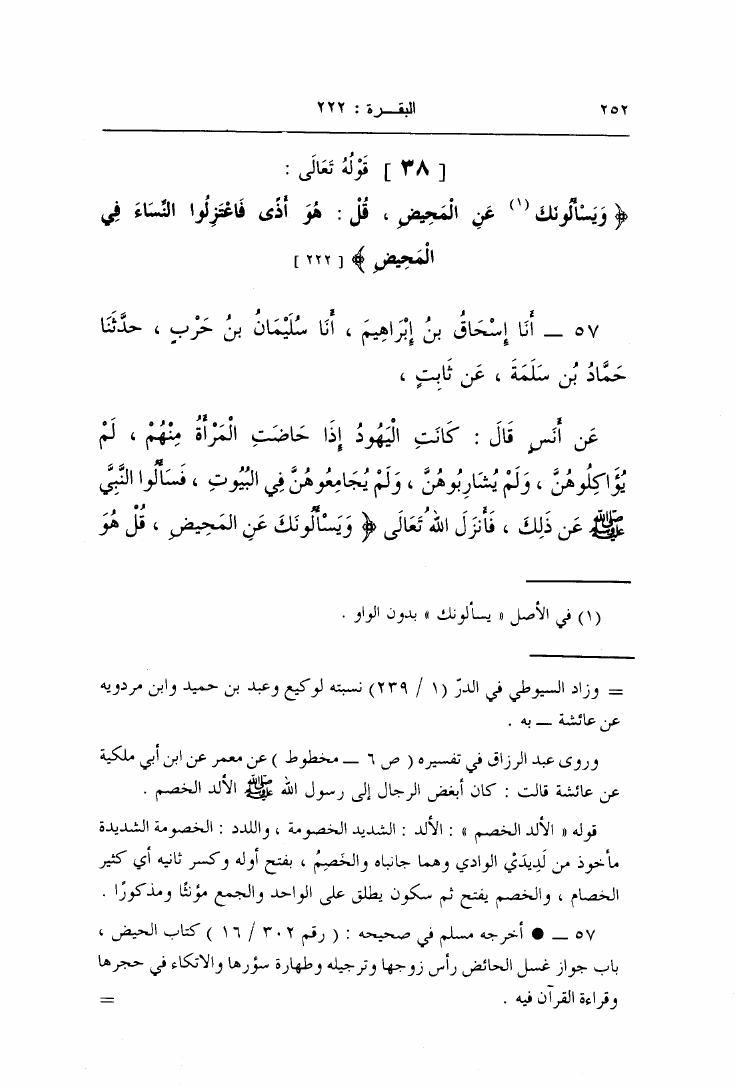 ٢٥٢ البقـــرة : ٢٢٢
[ ٣٨ ] قَوْلُهُ تَعَالَى :
﴿ وَيَسْأَلُونَكَ (١) عَنِ الْمَحِيضِ ، قُلْ : هُوَ أَذًى فَاعْتَزِلُوا النِّسَاءَ فِي
الْمَحِيضِ ﴾ [ ٢٢٢ ]
٥٧ ــ أَنَا إِسْحَاقُ بنُ إِبْرَاهِيمَ ، أَنَا سُلَيْمَانُ بنُ حَرْبٍ ، حدَّثَنَا
حَمَّادُ بُن سَلَمَةَ ، عَن ثَابِتٍ ،
عَن أَنَسٍ قَالَ : كَانَتِ الْيَهُودُ إِذَا حَاضَتِ الْمَرْأَةُ مِنْهُمْ ، لَمْ
يُؤَاكِلُوهُنَّ ، وَلَمْ يُشَارِبُوهُنَّ ، وَلَمْ يُجَامِعُوهُنَّ فِي البُيُوتِ ، فَسَأَلُوا النَّبِيَّ
ﷺ عَن ذَلِكَ ، فَأَنزَلَ اللهُ تَعَالَى ﴿ وَيَسْأَلُونَكَ عَنِ المَحِيضِ ، قُلْ هُوَ
(١) في الأصل « يسألونك » بدون الواو .
= وزاد السيوطي في الدرّ (١ / ٢٣٩) نسبته لوكيع وعبد بن حميد وابن مردويه
عن عائشة ــ به .
وروى عبد الرزاق في تفسيره ( ص ٦ ــ مخطوط ) عن معمر عن ابن أبي ملكية
عن عائشة قالت : كان أبغض الرجال إلى رسول الله ﷺ الألد الخصم .
قوله « الألد الخصم » : الألد : الشديد الخصومة ، واللدد : الخصومة الشديدة
مأخوذ من لَدِيدَيْ الوادي وهما جانباه والخَصِمُ ، بفتح أوله وكسر ثانيه أي كثير
الخصام ، والخصم يفتح ثم سكون يطلق على الواحد والجمع مؤنثًا ومذكورًا .
٥٧ ــ ● أخرجه مسلم في صحيحه : ( رقم ٣٠٢ / ١٦ ) كتاب الحيض ،
باب جواز غسل الحائض رأس زوجها وترجيله وطهارة سؤرها والاتكاء في حجرها
وقراءة القرآن فيه . =